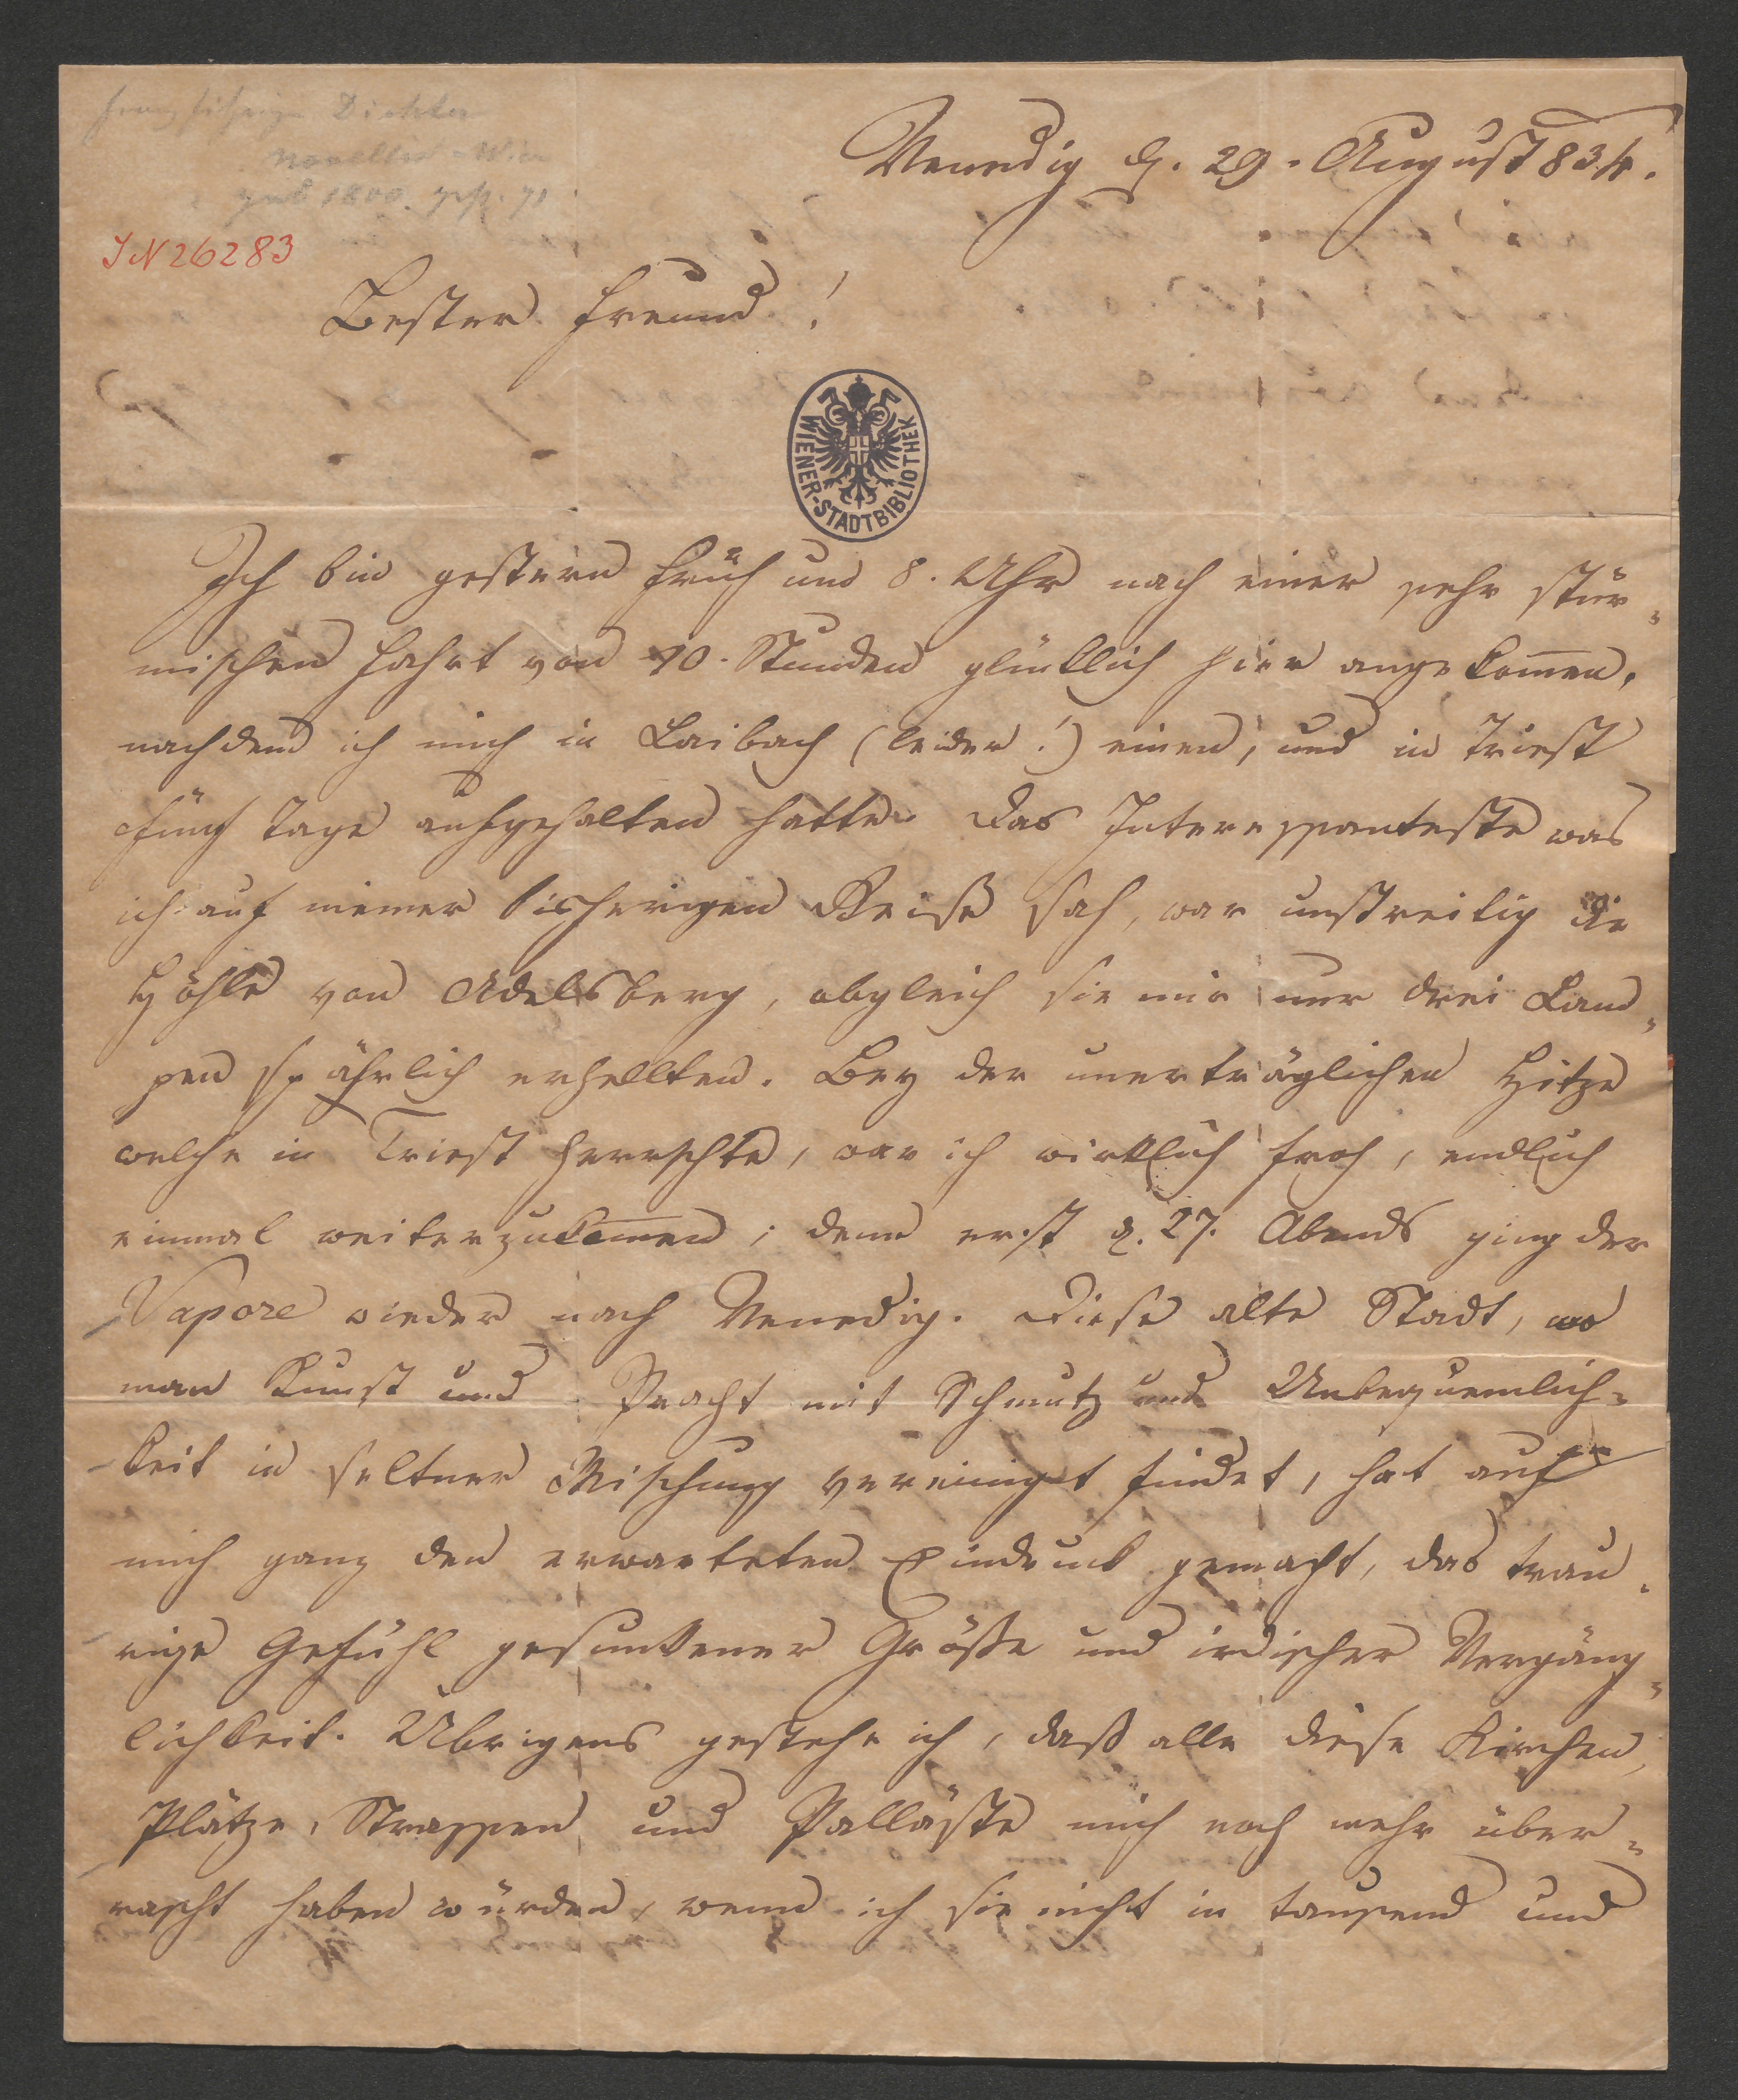 Dichter
Novellist - Wien
geb 1800. gest. 71
Venedig d. 29. August 834.
IN 26283
Bester Freund!
WIENER-STADTBIBLIOTHEK
Ich bin gestern früh um 8. Uhr nach einer sehr stür-
mischen Fahrt von 10. Stunden glücklich hier angekom̅en,
nachdem ich mich in Laibach (leider!) einen, und in Triest
fünf Tage aufgehalten hatte. Das Interessanteste was
ich auf meiner bisherigen Reise sah, war unstreitig die
Höhle von Adelsberg, obgleich sie mir nur drei Lam-
pen spährlich erhellten. Bey der unerträglichen Hitze
welche in Triest herrschte, war ich wirklich froh, endlich
einmal weiterzukom̅en; denn erst d. 27. Abends ging der
Vapore wieder nach Venedig. Diese alte Stadt, wo
man Kunst und Pracht mit Schmutz und Unbequemlich-
keit in seltner Mischung vereinigt findet, hat auf
mich ganz den erwarteten Eindruck gemacht, das trau-
rige Gefühl gesunkener Größe und irdischer Vergäng-
lichkeit. Übrigens gestehe ich, daß alle diese Kirchen,
Plätze, Strassen und Palläste mich noch mehr über-
rascht haben würden, wenn ich sie nicht in tausend und